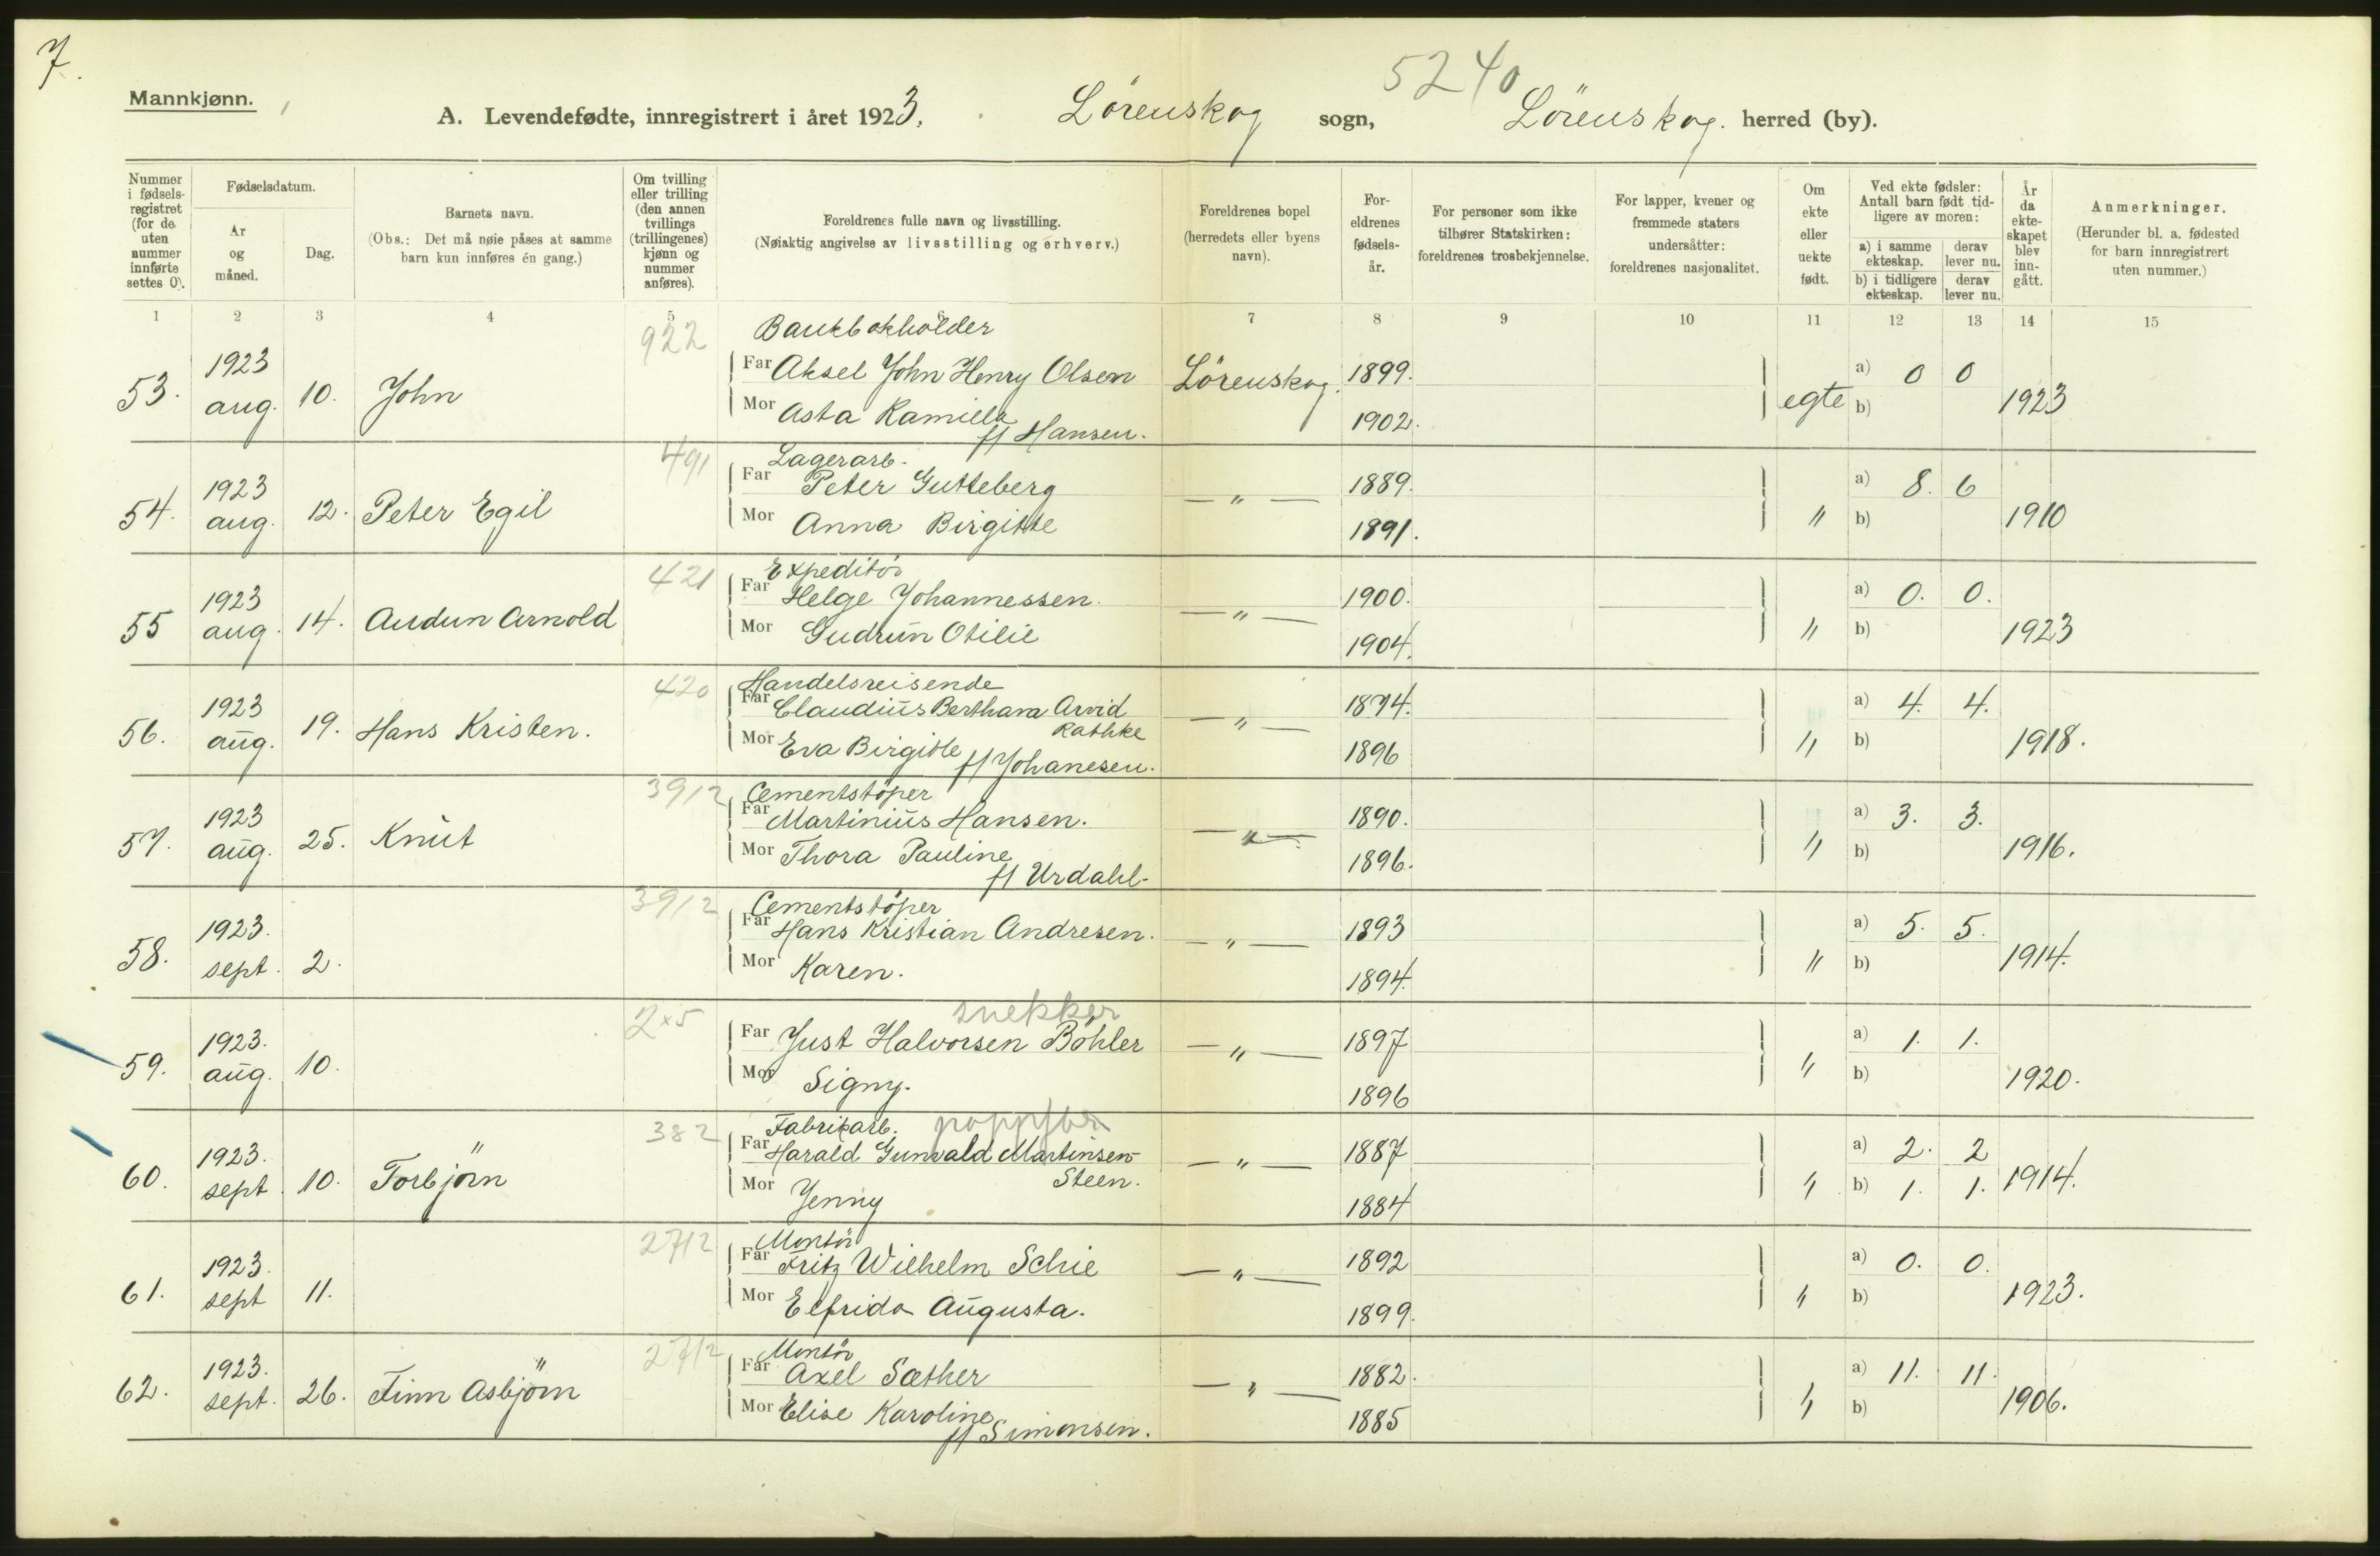 7.
Mannkjønn.
5240
A. Levendefødte, innregistrert i året 1923. Lörenskog sogn, Lörenskog. herred (by).
Nummer i fødselsregistret (for de uten nummer innførte settes 0).
Fødselsdatum.
År og måned.
Dag.
Barnets navn.
(Obs.: Det må nøie påses at samme barn kun innføres én gang.)
Om tvilling eller trilling (den annen tvillings (trillingenes) kjønn og nummer anføres).
Foreldrenes fulle navn og livsstilling.
(Nøiaktig angivelse av livsstilling og erhverv.)
Foreldrenes bopel (herredets eller byens navn).
Foreldrenes fødselsår.
For personer som ikke tilhører Statskirken: foreldrenes trosbekjennelse.
For lapper, kvener og fremmede staters undersåtter: foreldrenes nasjonalitet.
Om ekte eller uekte født.
Ved ekte fødsler: Antall barn født tidligere av moren:
a) i samme ekteskap. derav lever nu.
b) i tidligere ekteskap. derav lever nu.
År da ekteskapet blev inngått.
Anmerkninger.
(Herunder bl. a. fødested for barn innregistrert uten nummer.)
1 2 3 4 5 6 7 8 9 10 11 12 13 14 15
922 Bankbokholder
53. 1923 aug. 10. John Far Aksel John Henry Olsen Lörenskog. 1899. egte a) 0 0 1923
Mor Asta Kamilla f/ Hansen. 1902. b)
491 Lagerarb.
54. 1923 aug. 12. Peter Egil Far Peter Gutteberg — " — 1889. " a) 8. 6 1910
Mor Anna Birgitte 1891. b)
421 Expeditör
55 1923 aug. 14. Audun Arnold Far Helge Johannessen. — " — 1900. " a) 0. 0. 1923
Mor Gudrun Otilie 1904. b)
420 Handelsreisende
56. 1923 aug. 19. Hans Kristen. Far Claudius Berthara Arvid Rathke — " — 1894. " a) 4. 4. 1918.
Mor Eva Birgitte f/ Johanesen. 1896 b)
39/2 Cementstöper
57. 1923 aug. 25. Knut Far Martinius Hansen. — " — 1890. " a) 3. 3. 1916.
Mor Thora Pauline f/ Urdahl. 1896. b)
39/2 Cementstöper
58. 1923. sept. 2. Far Hans Kristian Andresen. — " — 1893 " a) 5. 5. 1914.
Mor Karen. 1894. b)
2x5 snekker
59. 1923. aug. 10. Far Just Halvorsen Böhler — " — 1897 " a) 1. 1. 1920.
Mor Signy. 1896 b)
382 Fabrikarb.
60. 1923. sept. 10. Torbjörn Far Harald Gunvald Martinsen Steen. — " — 1887 " a) 2. 2 1914.
Mor Jenny 1884 b) 1. 1.
27/2 Montör
61. 1923. sept 11. Far Fritz Wilhelm Schie — " — 1892 " a) 0. 0. 1923.
Mor Elfrida Augusta. 1899. b)
27/2 Montör
62. 1923. sept. 26. Finn Asbjörn Far Axel Sæther — " — 1882. " a) 11. 11. 1906.
Mor Elise Karoline f/ Simonsen. 1885 b)